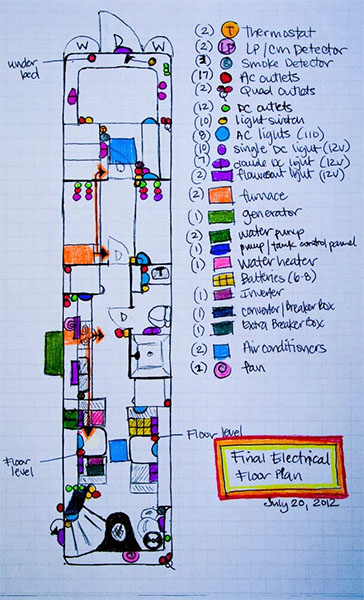 W D W
under bed
(2) T Thermostat
(2) LP LP/Cm Detector
(3) S Smoke Detector
(17) AC outlets
(2) Quad outlets
(12) DC outlets
(10) light switch
(8) AC lights (110)
(10) single DC light (12V)
(7) double DC light (12V)
(2) flourescent light (12V)
(2) furnace
(1) generator
(2) water pump
(1) pump/tank control pannel
(1) water heater
Batteries (6-8)
(1) Inverter
(1) converter/Breaker Box
(1) Extra Breaker Box
(2) Air conditioners
(2) fan
D
D
D
Floor level
Floor level
Final Electrical
Floor Plan
July 20, 2012